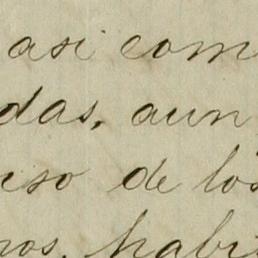 asi com
das, aun
uso de los
nos, habi